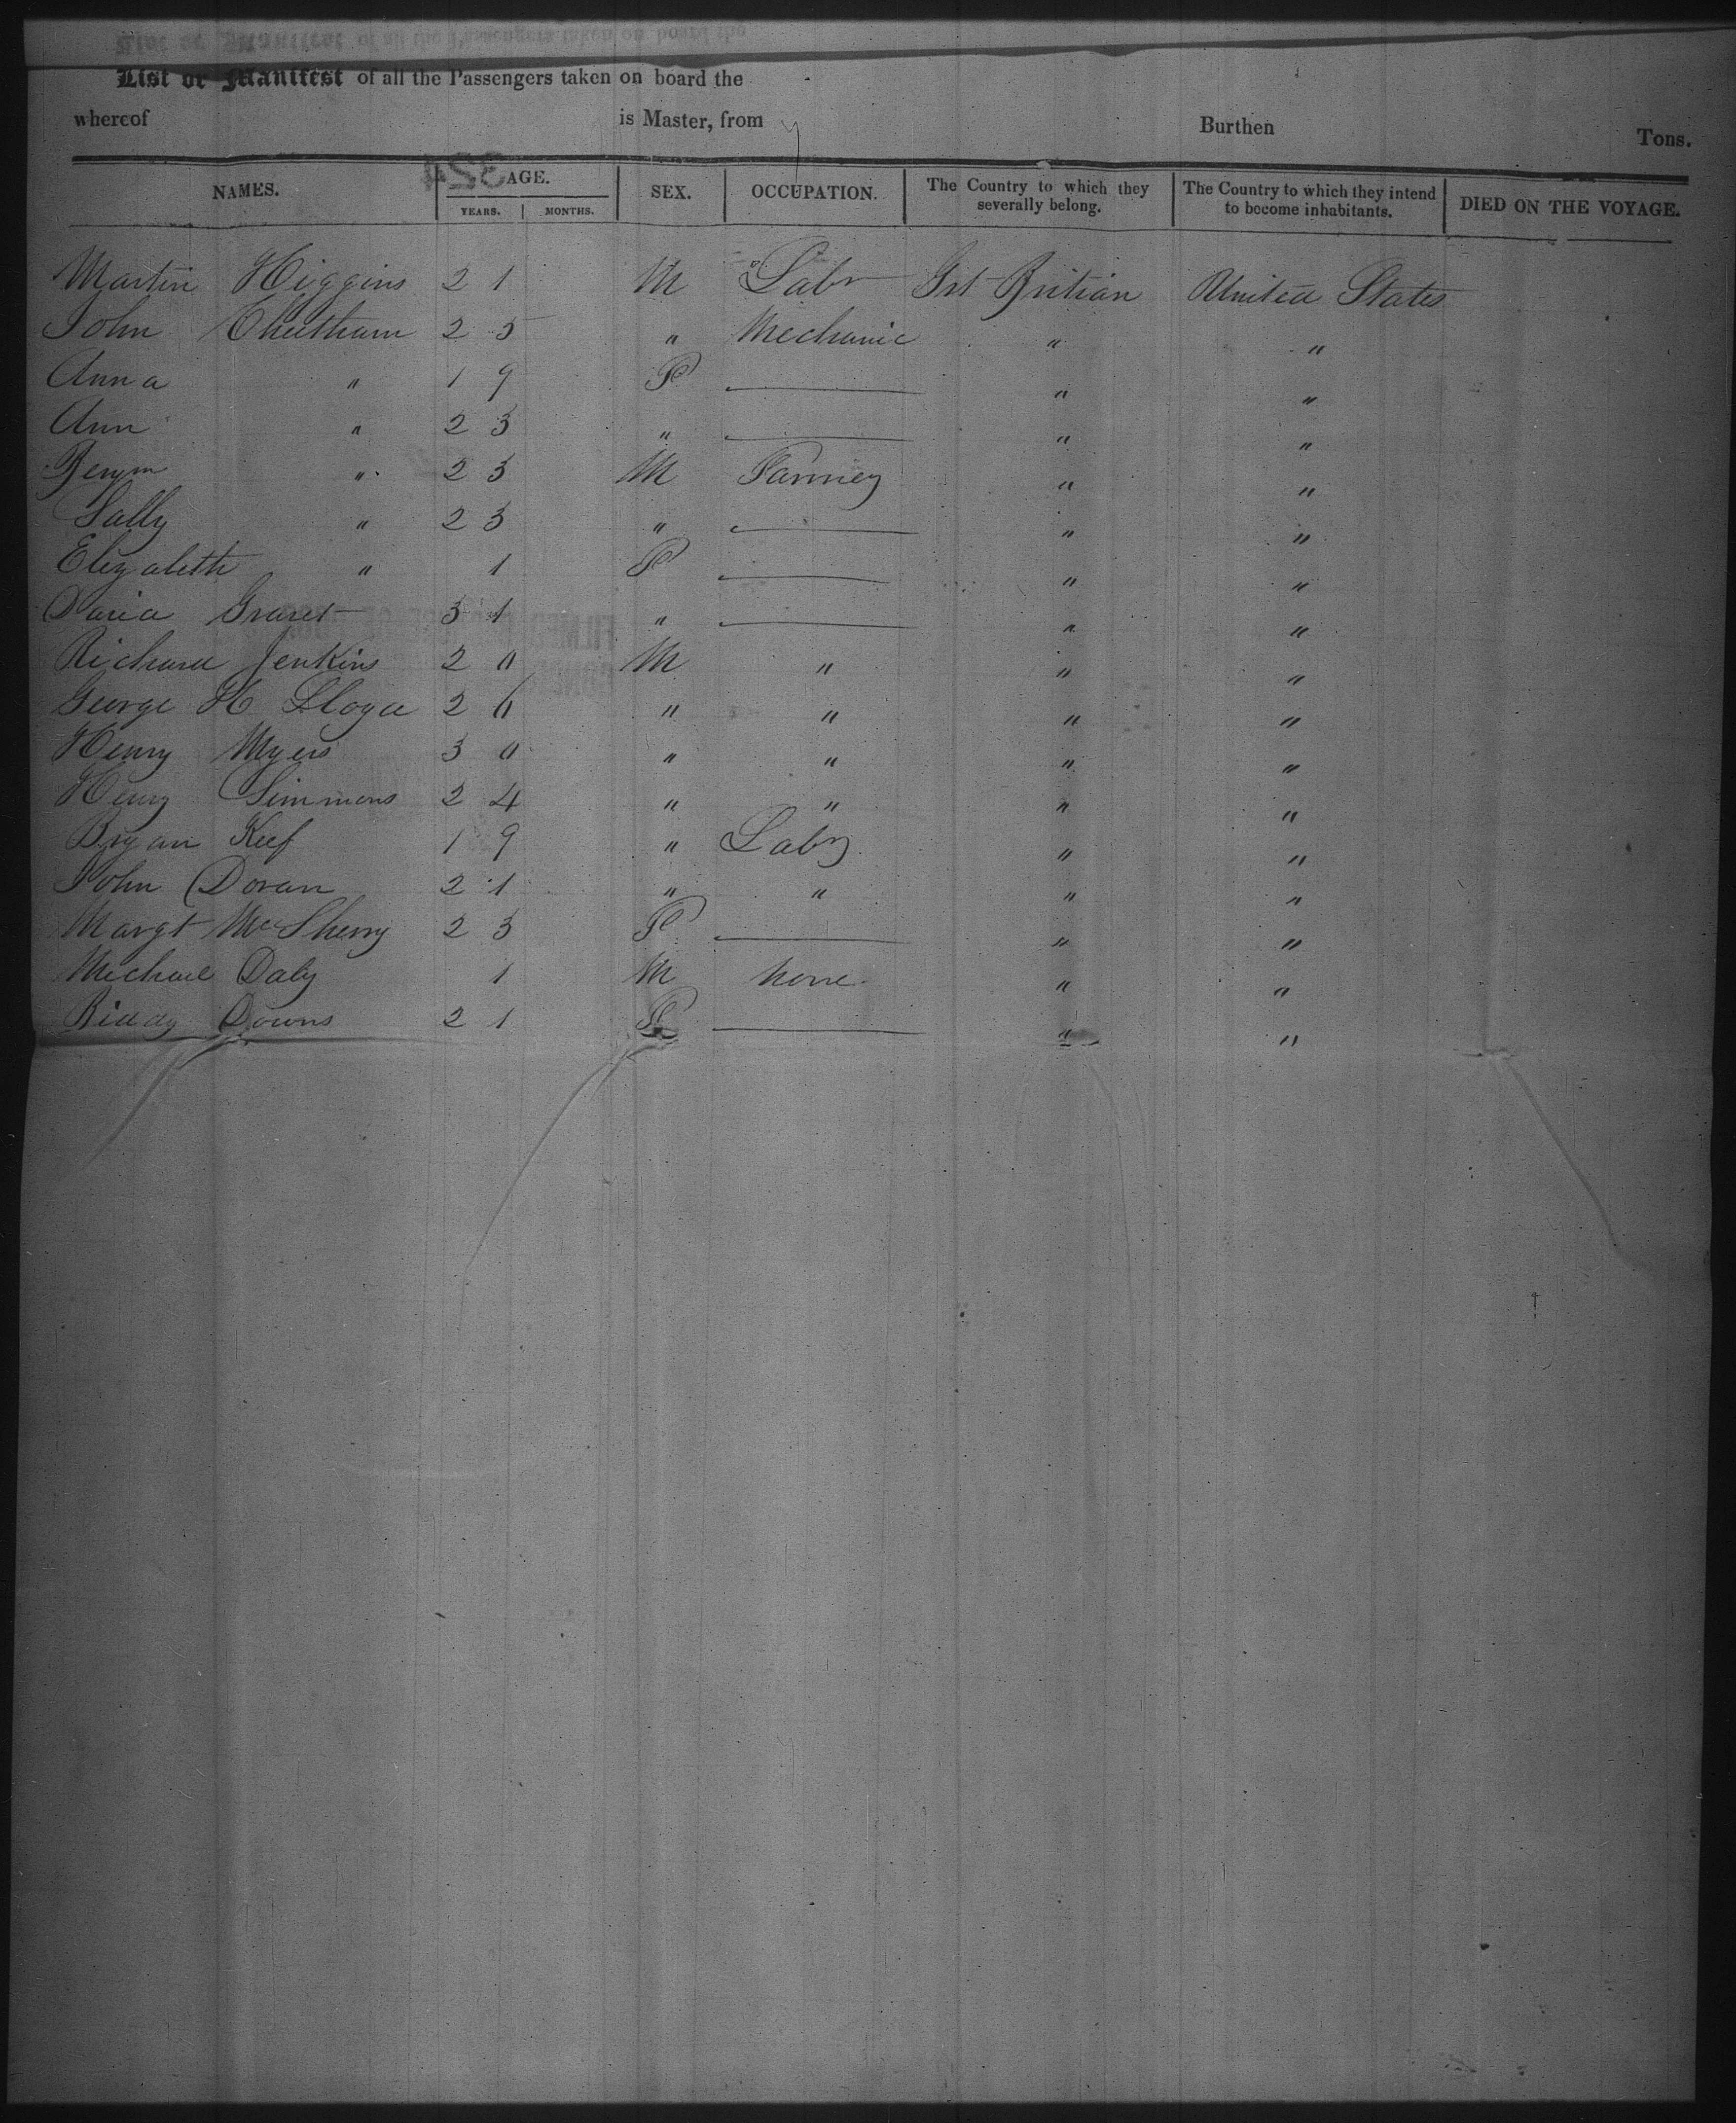 List or Manifest of all the Passengers taken on board the
whereof is Master, from Burthen Tons.
NAMES. AGE. SEX. OCCUPATION. The Country to which they severally belong. The Country to which they intend to become inhabitants. DIED ON THE VOYAGE.
YEARS. MONTHS.
Martin Higgins 21 M Labr Grt Britian United States
John Cheetham 25 " Mechanic " "
Anna " 19 F " "
Ann " 23 " " "
Benjm " 23 M " "
Sally " 23 " " "
Elizabeth " 1 F " "
31 " " "
Richard Jenkins 20 M " " "
George H Lloyd 26 " " " "
Henry Myers 30 " " " "
Henry Simmons 24 " " " "
Bryan Keef 19 " Labr " "
John Doran 21 " " " "
Margt McSherry 23 F " "
Michael Daly 1 M None " "
Biddy Downs 21 F " "